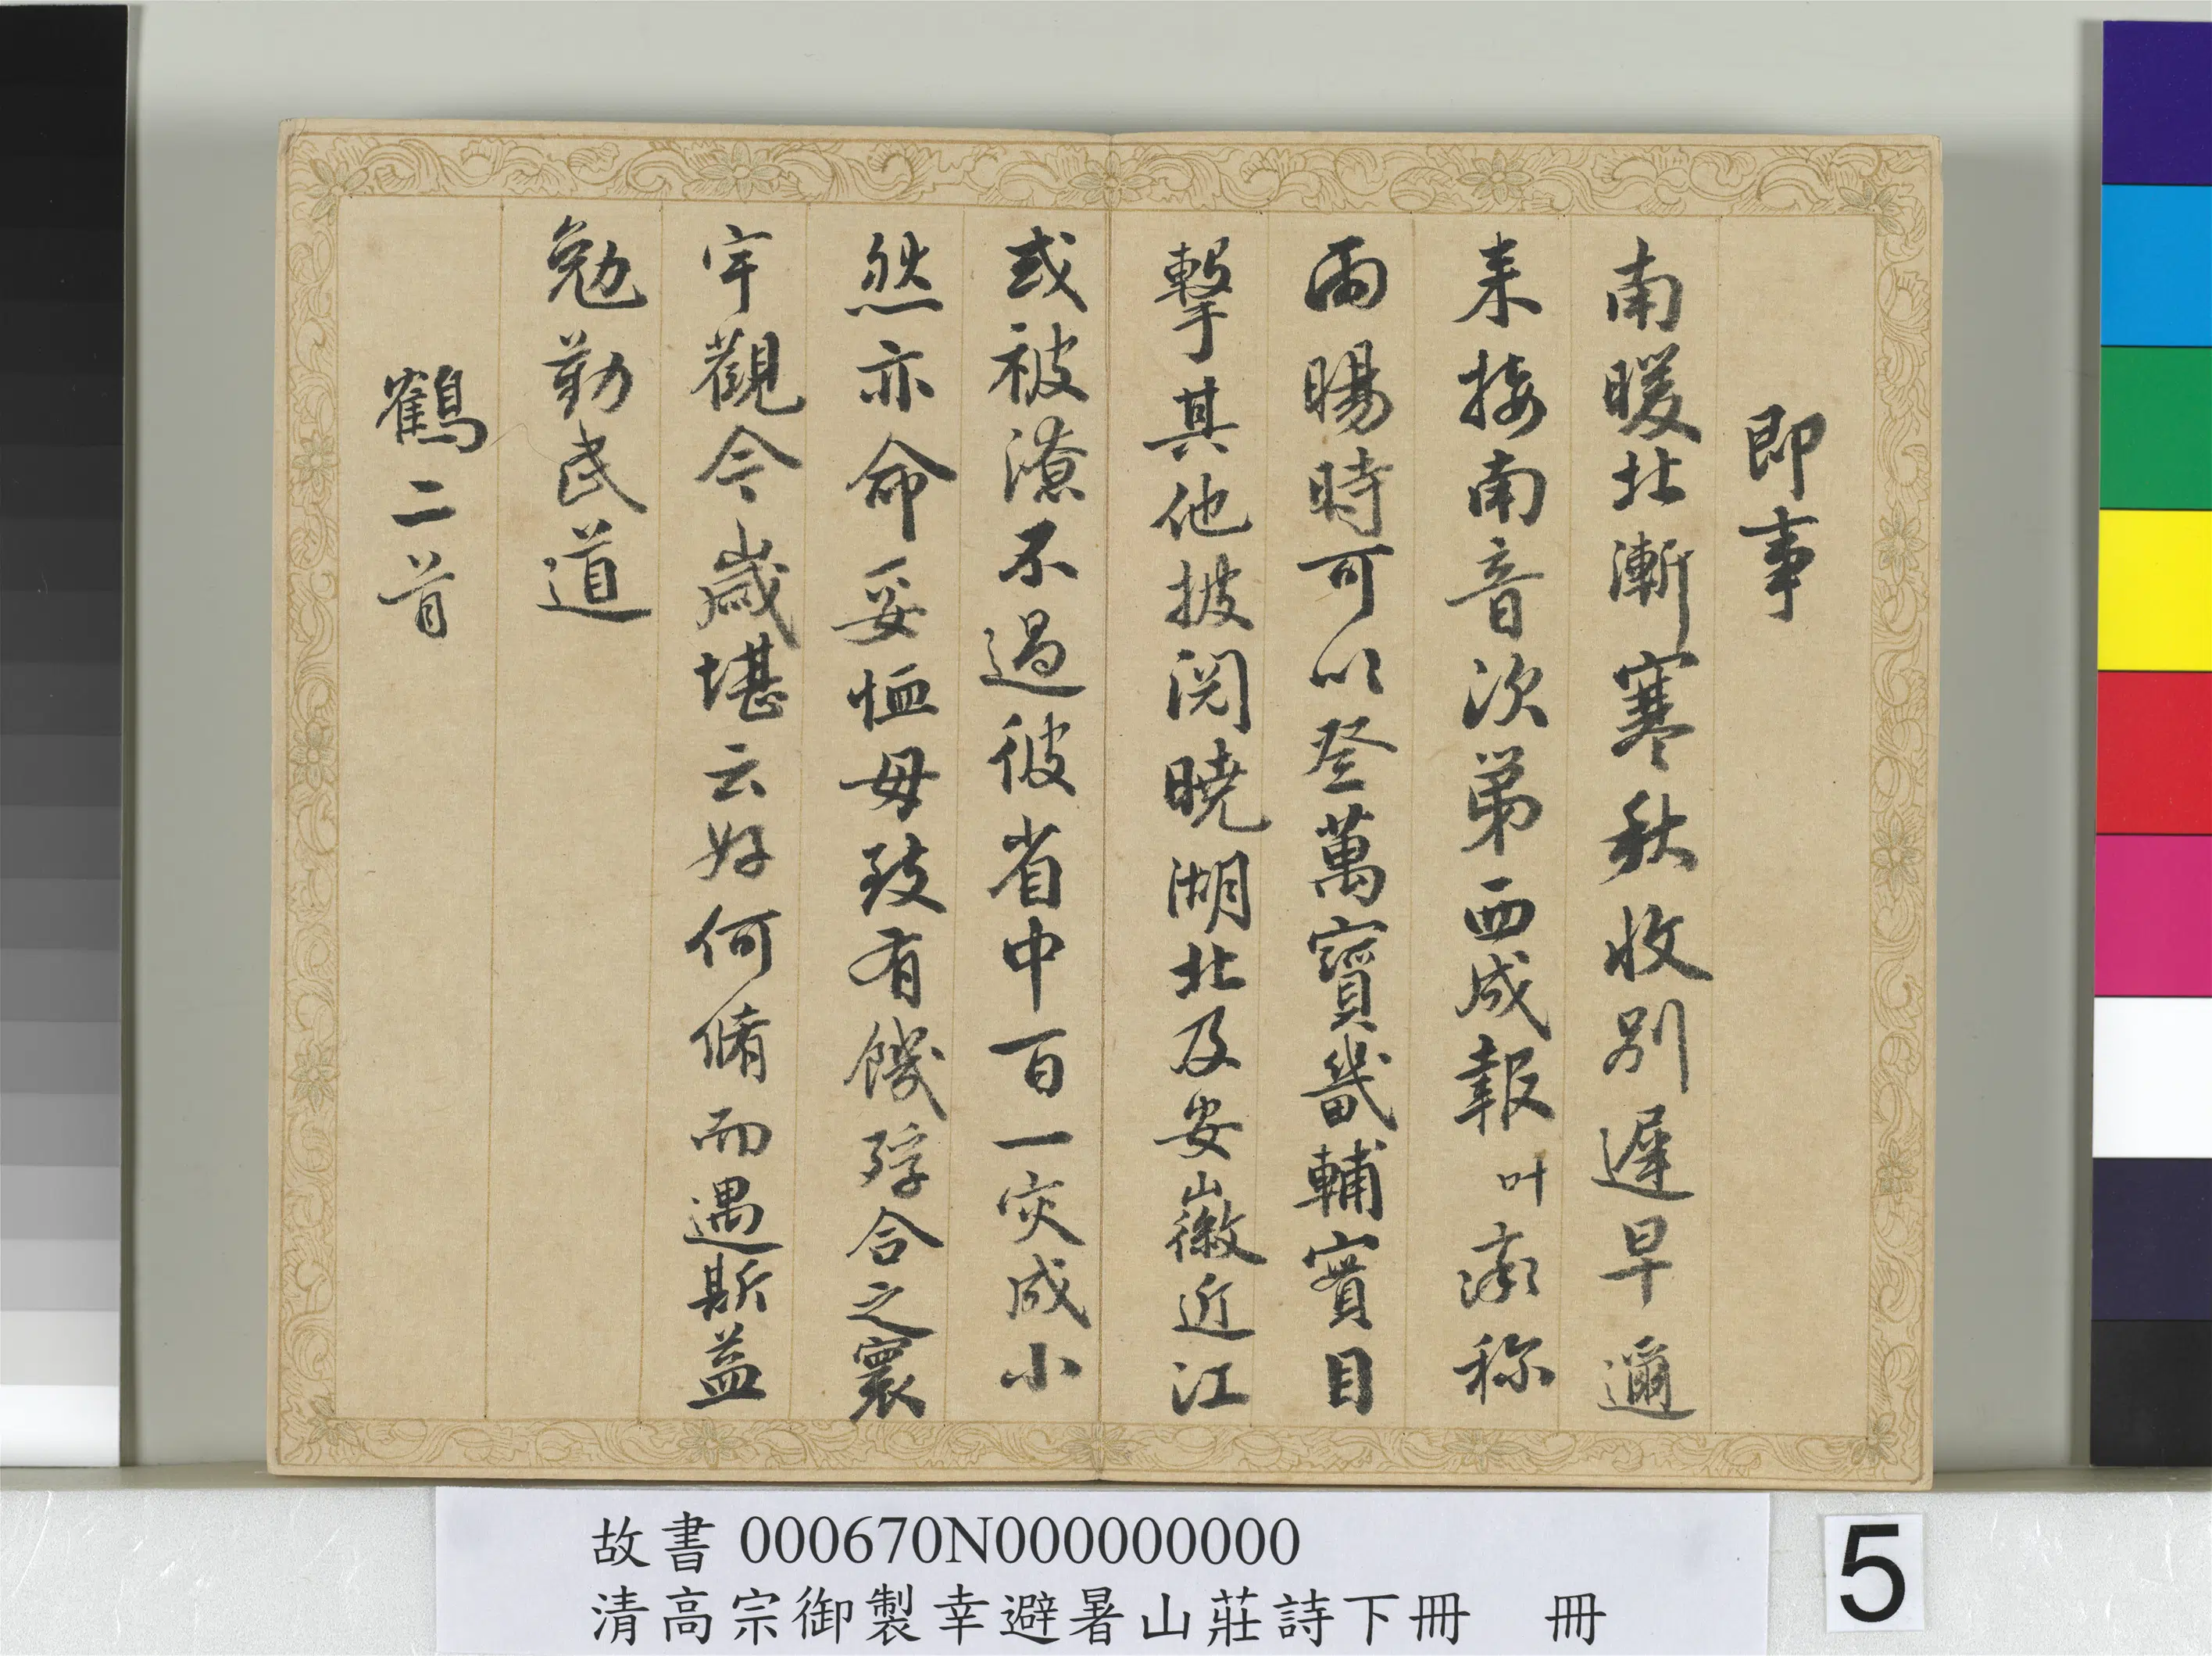 即事
南暖北漸寒秋收别遲早邇
来接南音次第西成報叶豪称
雨暘時可以登萬寶畿輔實目
擊其他披閱曉湖北及安徽近江
或被潦不過彼省中百一灾成小
然亦命妥恤毋致有饑殍合之寰
宇觀今歲堪云好何脩而遇斯益
勉勤民道
鶴二首
故書 000670N000000000
清高宗御製幸避暑山莊詩下冊 冊
5